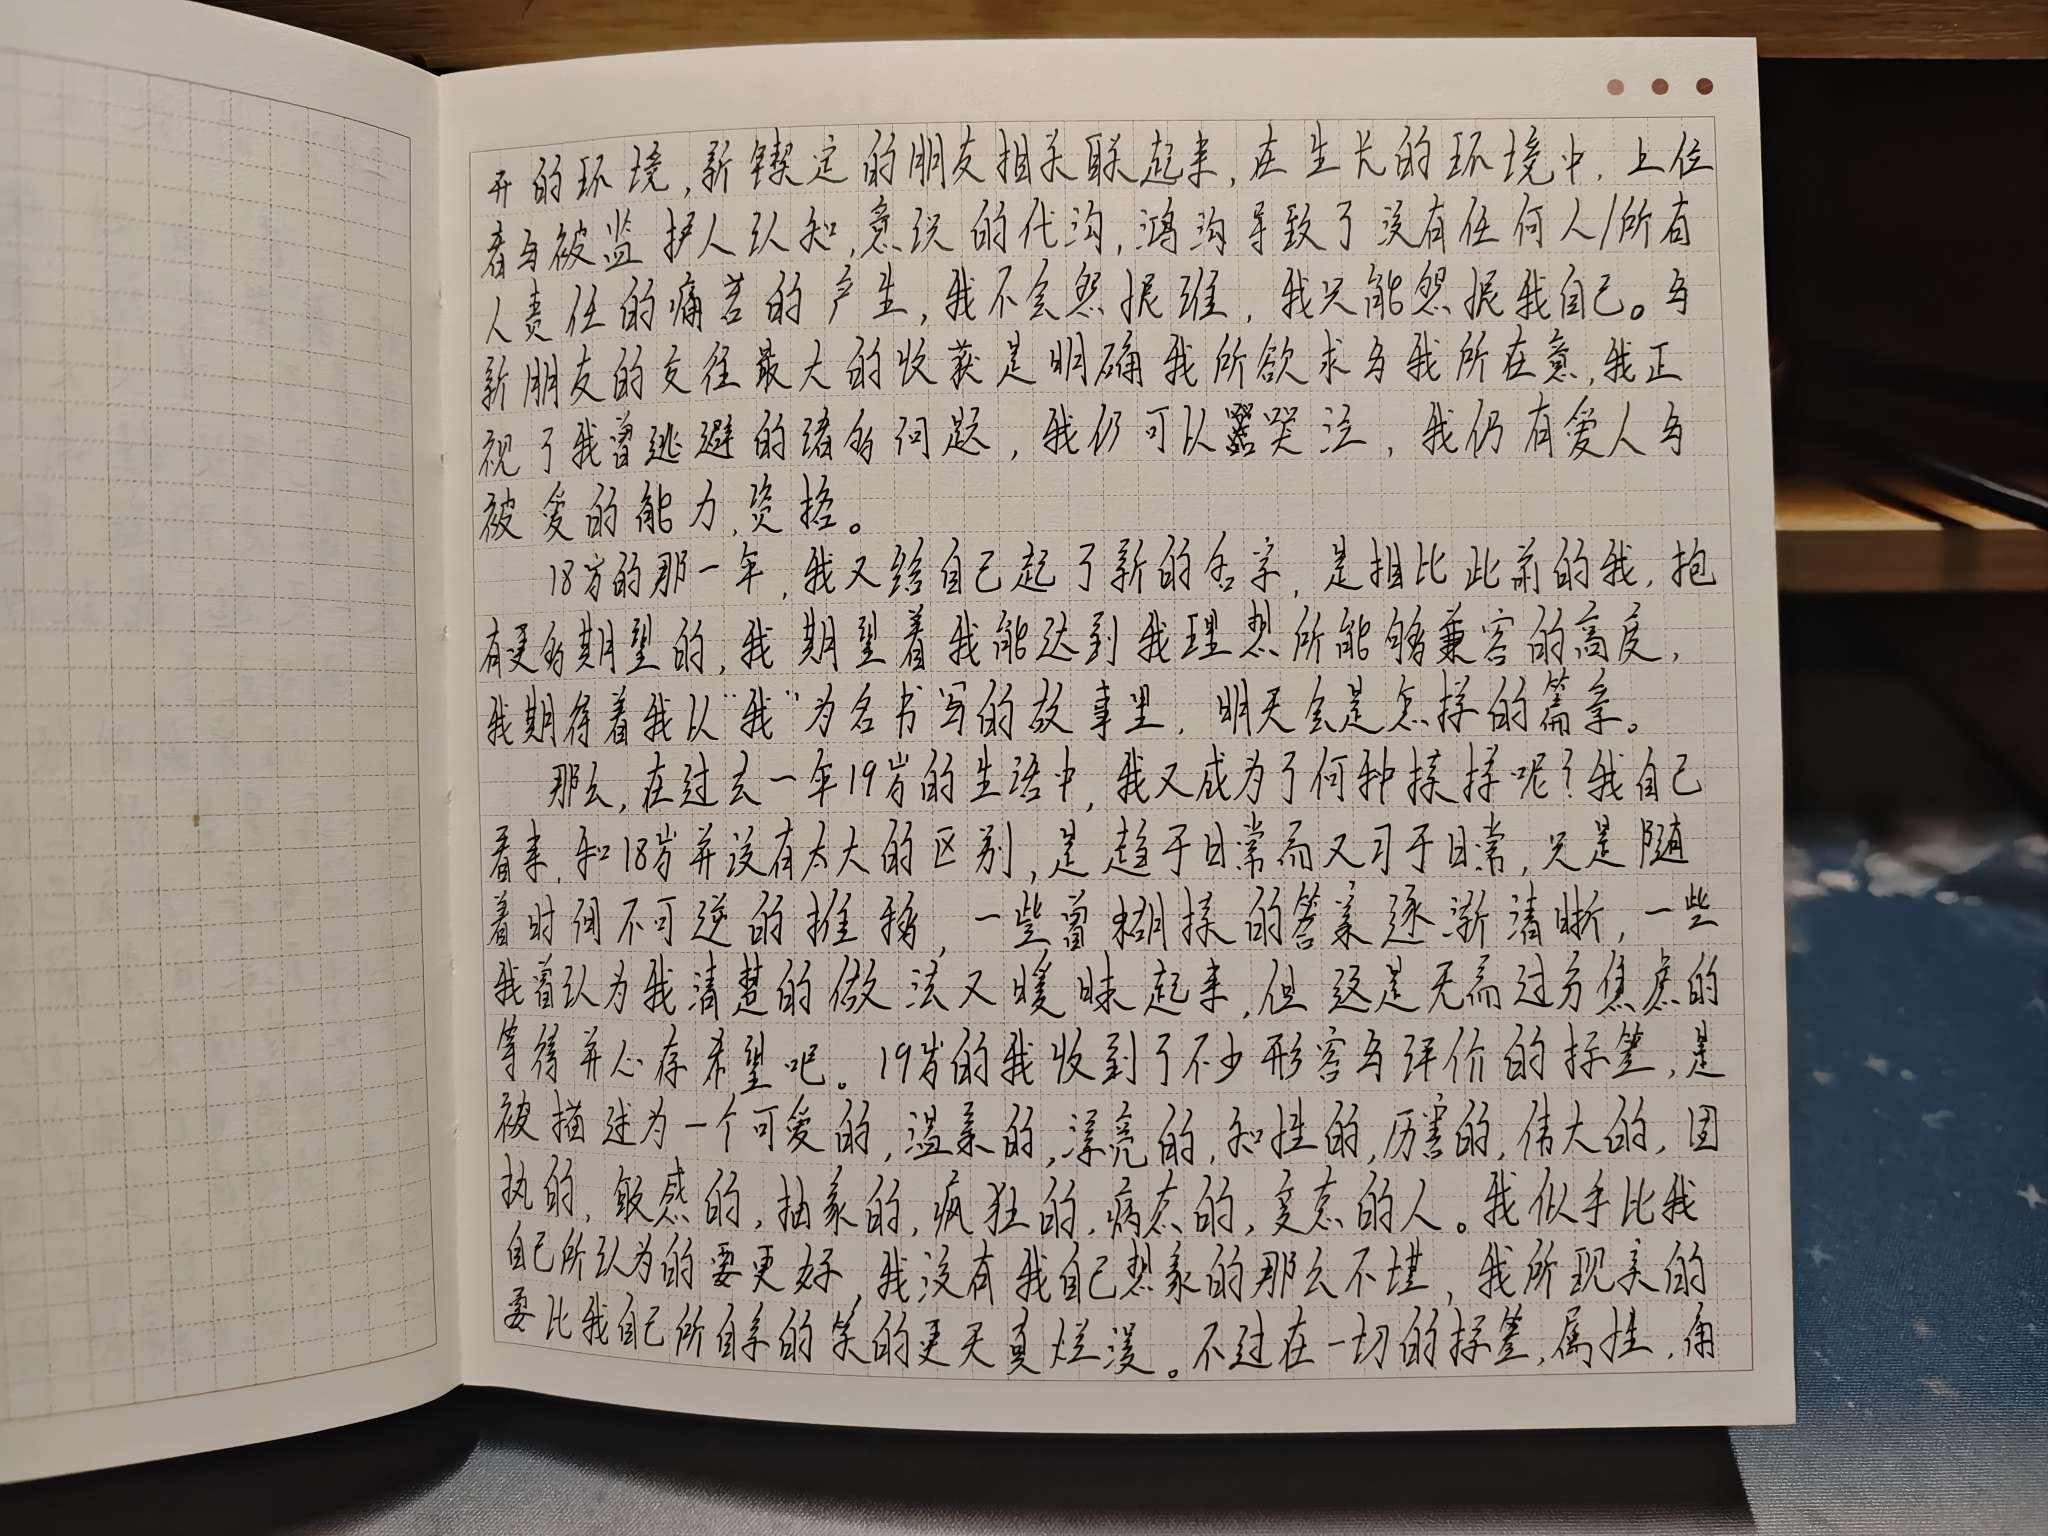 开的环境，新锲定的朋友相关联起来，在生长的环境中，上位
者与被监护人认知，意识的代沟，鸿沟导致了没有任何人/所有
人责任的痛苦的产生，我不会怨捉谁，我只能怨捉我自己。与
新朋友的交往最大的收获是明确我所欲求与我所在意，我正
视了我曾逃避的诸多问题，我仍可以哭泣，我仍有爱人与
被爱的能力，资格。
18岁的那一年，我又给自己起了新的名字，是相比此前的我，抱
有更多期望的，我期望着我能达到我理想所能够兼容的高度，
我期待着我以“我”为名书写的故事里，明天会是怎样的篇章。
那么，在过去一年19岁的生活中，我又成为了何种模样呢？我自己
看来，和18岁并没有太大的区别，是趋于日常而又习于日常，只是随
着时间不可逆的推移，一些曾模糊的答案逐渐清晰，一些
我曾认为我清楚的做法又暧昧起来，但这是无需过分焦虑的
等待并心存希望吧。19岁的我收到了不少形容与评价的标签，是
被描述为一个可爱的，温柔的，漂亮的，知性的，厉害的，伟大的，固
执的，敏感的，抽象的，疯狂的，病态的，变态的人。我似乎比我
自己所认为的要更好，我没有我自己想象的那么不堪，我所现实的
要比我自己所自系的笑的更天真烂漫。不过在一切的标签，属性，角